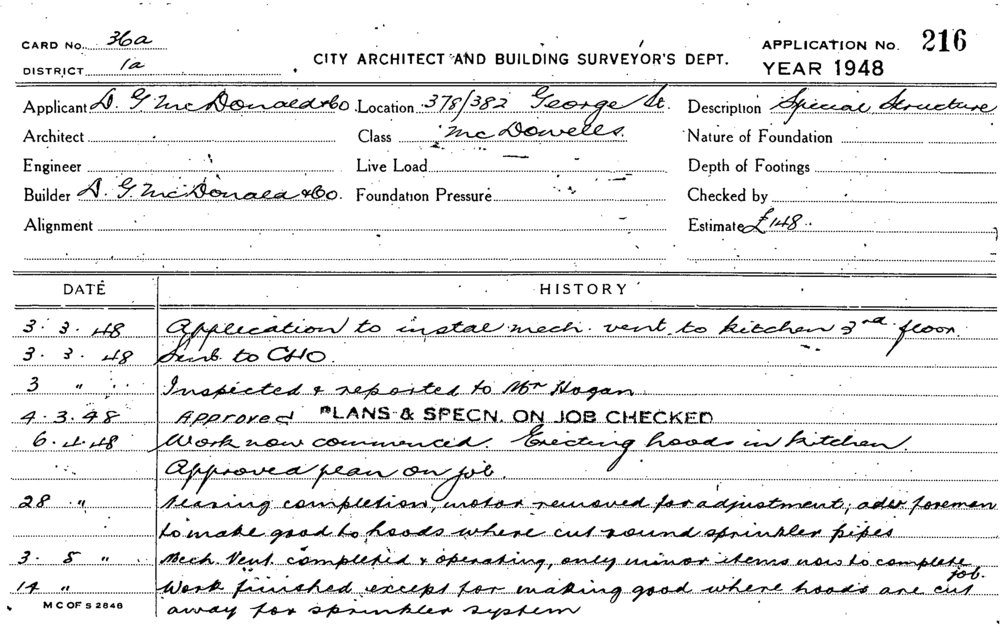 CARD No. 36a
DISTRICT 1a
CITY ARCHITECT AND BUILDING SURVEYOR'S DEPT.
APPLICATION No. 216
YEAR 1948
Applicant D. G McDonald & Co. Location 378/382 George St. Description Special Structure
Architect Class McDowells. Nature of Foundation
Engineer Live Load Depth of Footings
Builder D. G. McDonald & Co. Foundation Pressure Checked by
Alignment Estimate £148..
DATE HISTORY
3. 3. 48 Application to instal mech. vent. to kitchen 3rd. floor.
3. 3. 48 Sent to CHO.
3 " Inspected & reported to Mr Hogan
4. 3. 48 Approved PLANS & SPECN. ON JOB CHECKED
6. 4. 48 Work now commenced. Erecting hoods in kitchen.
Approved plan on job.
28 " Nearing completion, motor removed for adjustment; adv. foreman
to make good to hoods where cut round sprinkler pipes
3. 5 " Mech. Vent. completed & operating, only minor items now to complete
job.
14 " Work finished except for making good where hoods are cut
away for sprinkler system
M C OF S 2848